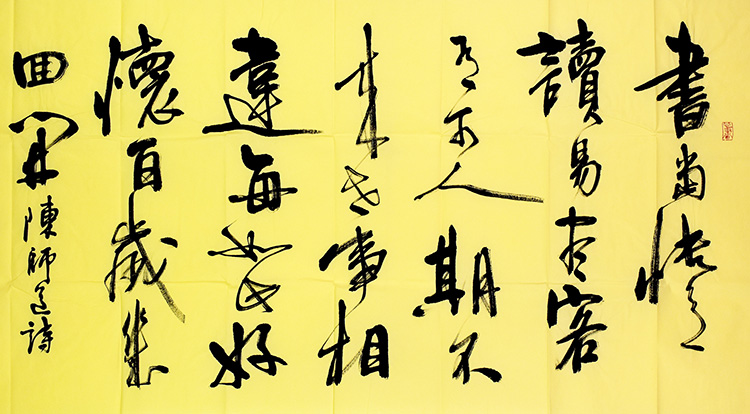 書當快意
讀易盡客
有可人期不
來世事相
違每如此好
懷百歲幾
回開陳師道詩